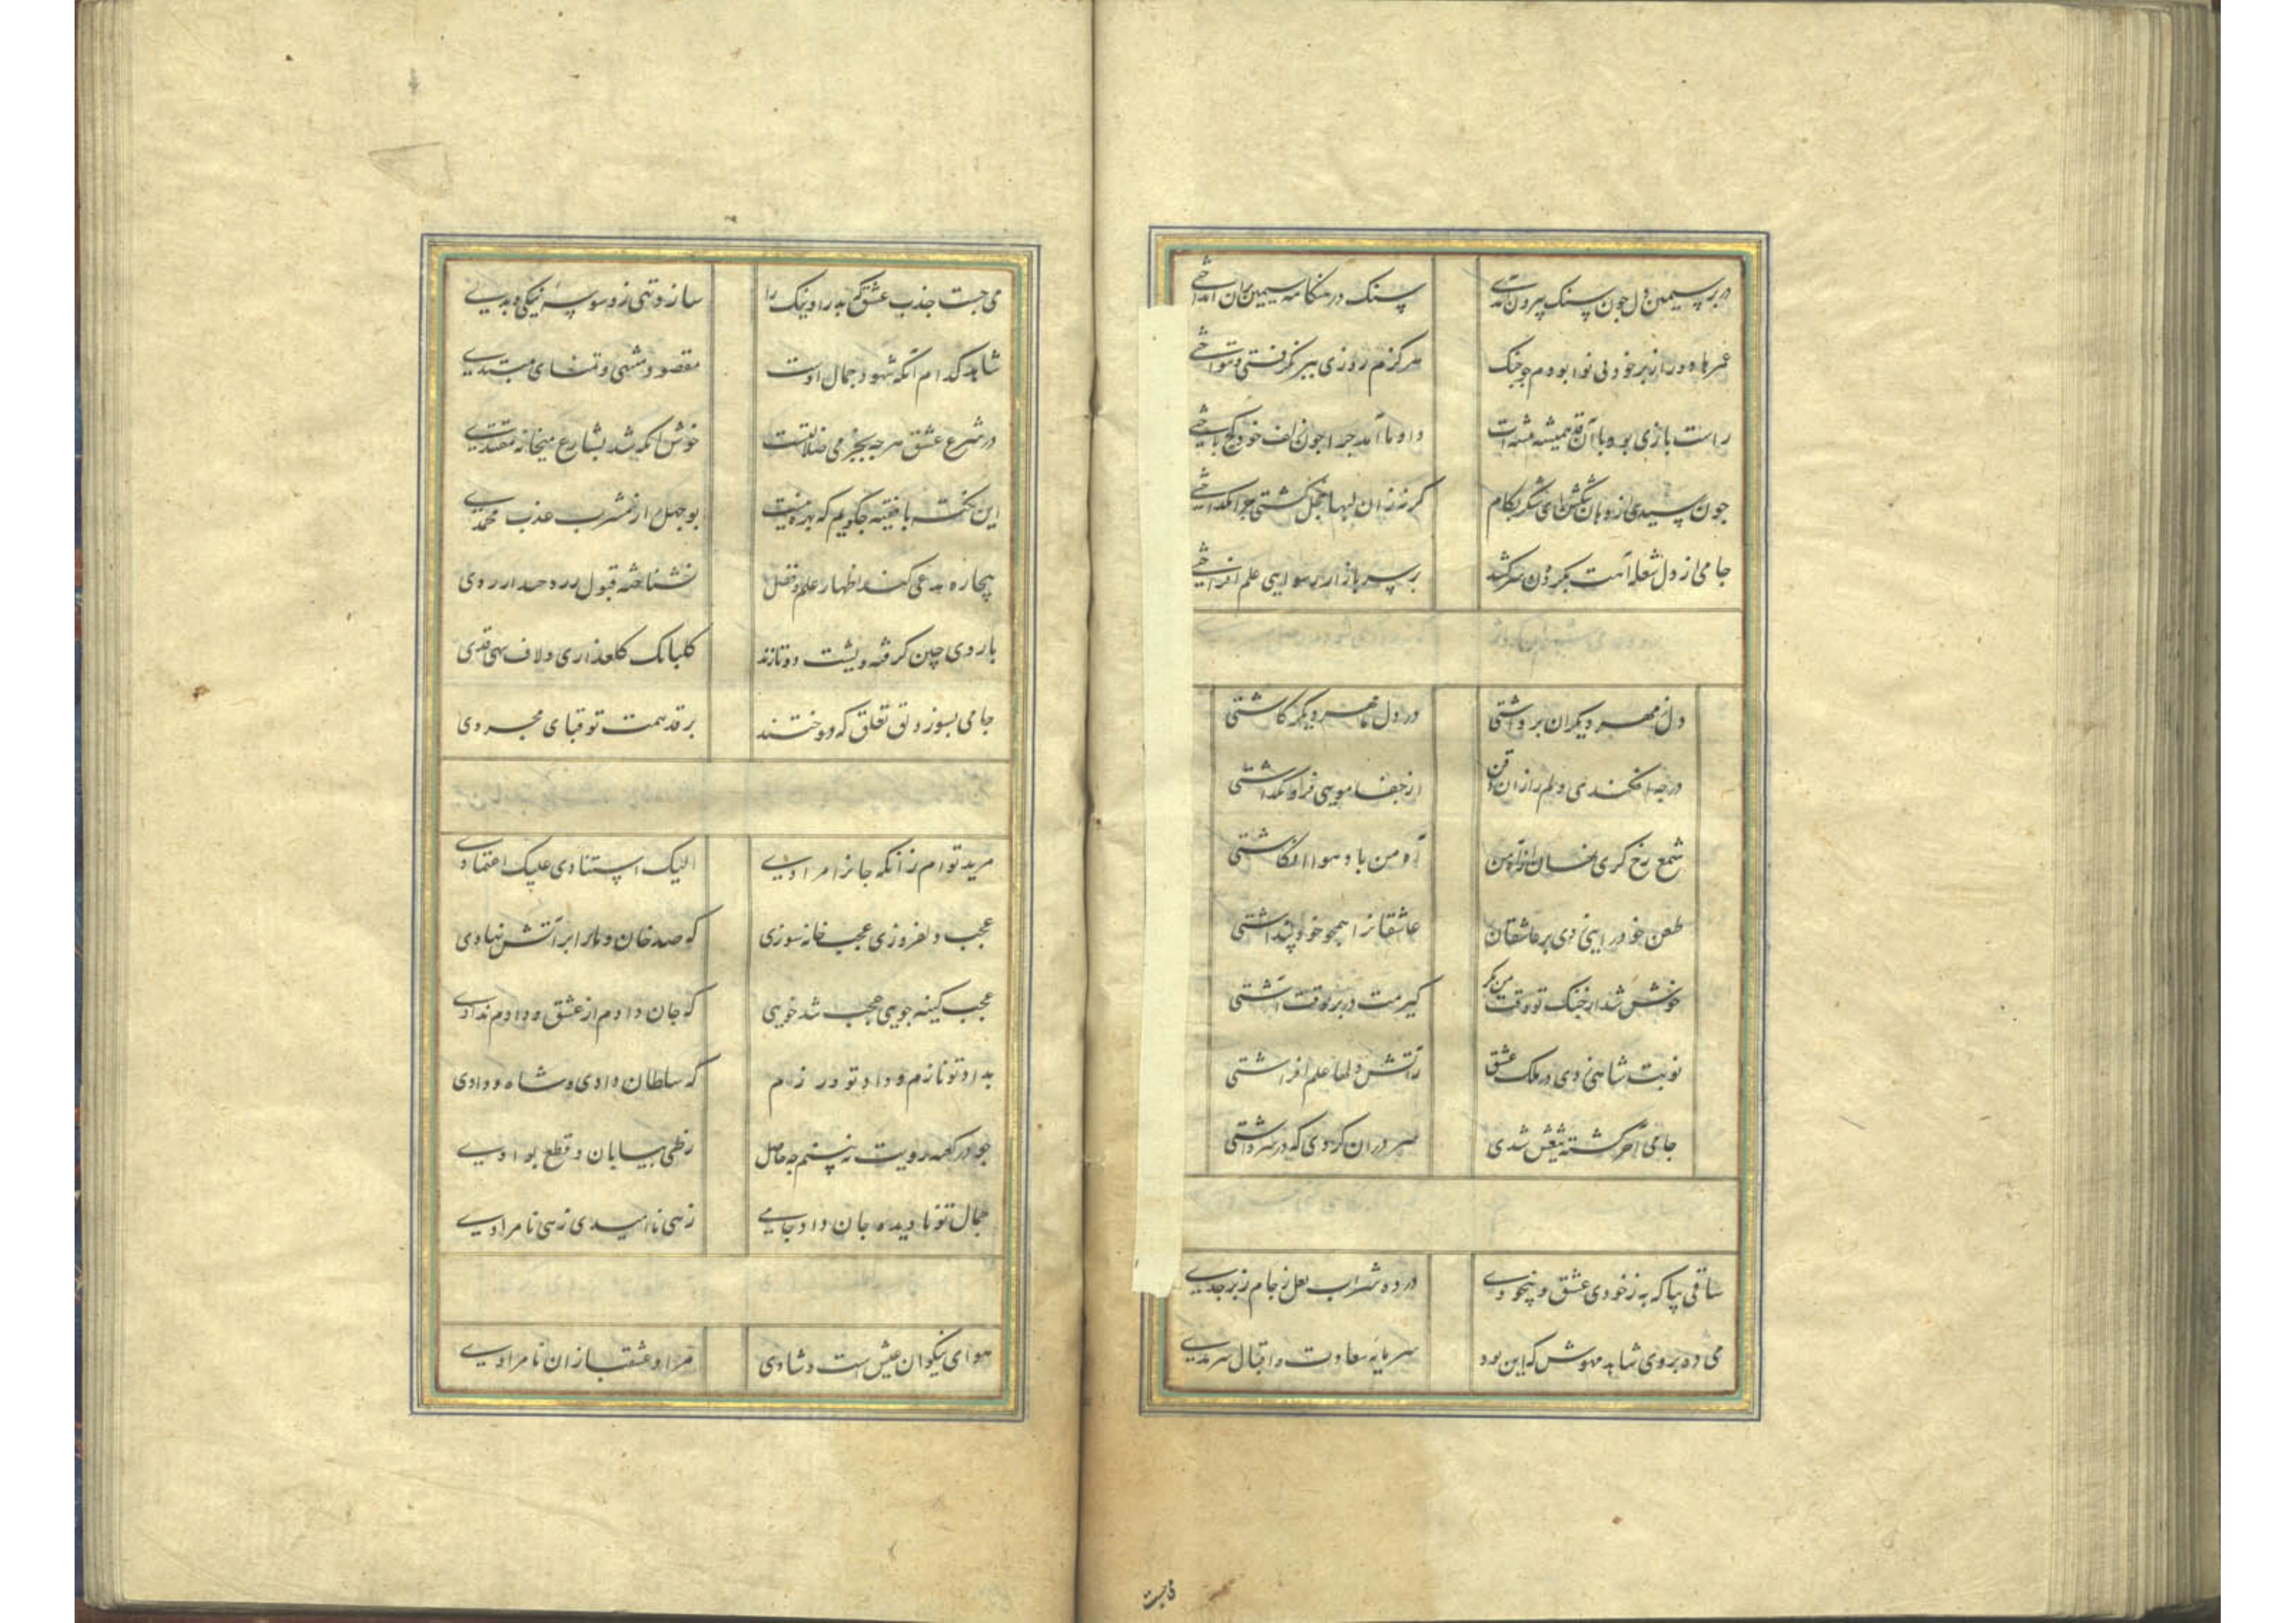 در بر سیمین دل چون سنک بیرون آمدی سنک در هنکامه سیمین بران انداختی
عمرها دور از بر خود بی نوا بودم چو چنک هرکزم روزی ببر نکرفتی و ننواختی
راست بازی بود با آن قد همیشه پیشه ات
چون رسیدی از دهان تنکش ای شکر بکام کر نه زان لبها خجل کشتی چرا نکداختی
جامی از دل شعله آهت بکردون سر کشید بر سر بازار رسوایی علم افراختی
دل ز مهر دیکران برداشتی در دل ما مهر دیکر کاشتی
در چه افکندی دلم را زان ذقن از جفا مویی فرو نکذاشتی
شمع رخ کردی نهان از آه من آه من باد هوا انکاشتی
طعن خود رایی زدی بر عاشقان عاشقانرا همچو خود پنداشتی
خوش شد از جنک تو وقت من مکر کیرمت در بر بوقت آشتی
نوبت شاهی زدی در ملک عشق ز آتش دلها علم افراشتی
جامی آخر کشته تیغش شدی سر در آن کردی که در سر داشتی
ساقی بیا که به ز خودی عشق و بیخودی در ده شراب لعل ز جام زبرجدی
می ده بروی شاهد مهوش که این بود سرمایه سعادت و اقبال سرمدی
می جست جذب عشق کم بد را و نیک را سازد تهی ز وسوسه نیکی و بدی
شاهد کدام آنکه شهود جمال اوست مقصود منتهی و تمنای مبتدی
در شرع عشق هر چه بجز می ضلالتست خوش آنکه شد بشارع میخانه مقتدی
این نکته با فقیه چکویم که بهره نیست بوجهل را ز مشرب عذب محمدی
بیچاره مدعی کند اظهار علم و فضل نشناخته قبول ز رد و حد از ردی
با روی چین کرفته و پشت دو تا زند کلبانک کلعذاری و لاف سهی قدی
جامی بسوز دلق تعلق که دوختند بر قد همت تو قبای مجردی
مرید توام زانکه جانرا مرادی الیک استنادی علیک اعتمادی
عجب دلفروزی عجب خانه سوزی که صد خان و مانرا بر آتش نهادی
عجب کینه جویی عجب تند خویی که جان دادم از عشق و دادم ندادی
بداد تو نازم و داد تو در زم که سلطان دادی و شاه ودادی
چو در کعبه رویت نبینم چه حاصل ز طی بیابان و قطع بوادی
جمال تو نادیده جان داد جامی زهی ناامیدی زهی نامرادی
هوای نیکوان عیش است و شادی مراد عشقبازان نامرادی